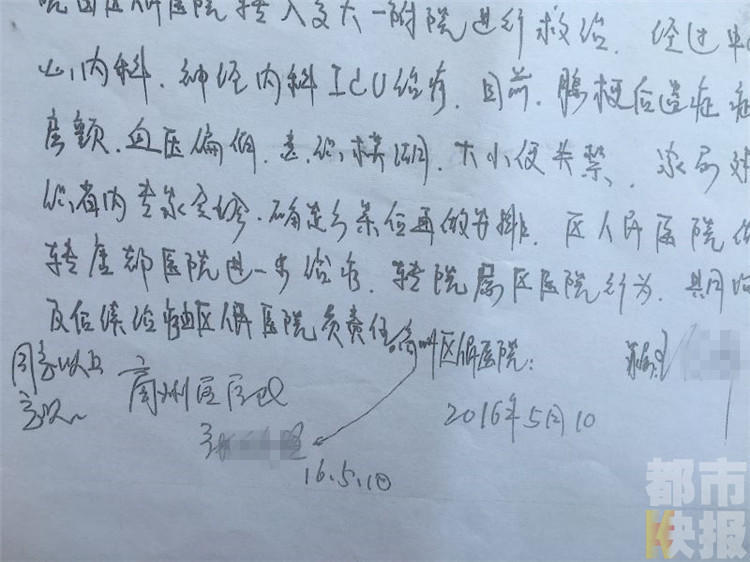 院由区人民医院转入交大一附院进行救治.经过
心内科.神经内科ICU治疗.目前.脑梗后遗症
.血压偏低.意识模糊.大小便失禁.家属
省内专家会诊.确定条件再做安排.区人民医院
转唐都医院进一步治疗.转院属区医院行为.共同
及后续治疗由区人民医院负责任
同意以上
意见
商州区医院
区人民医院:
家属:
2016年5月10
16.5.10
都市
快报